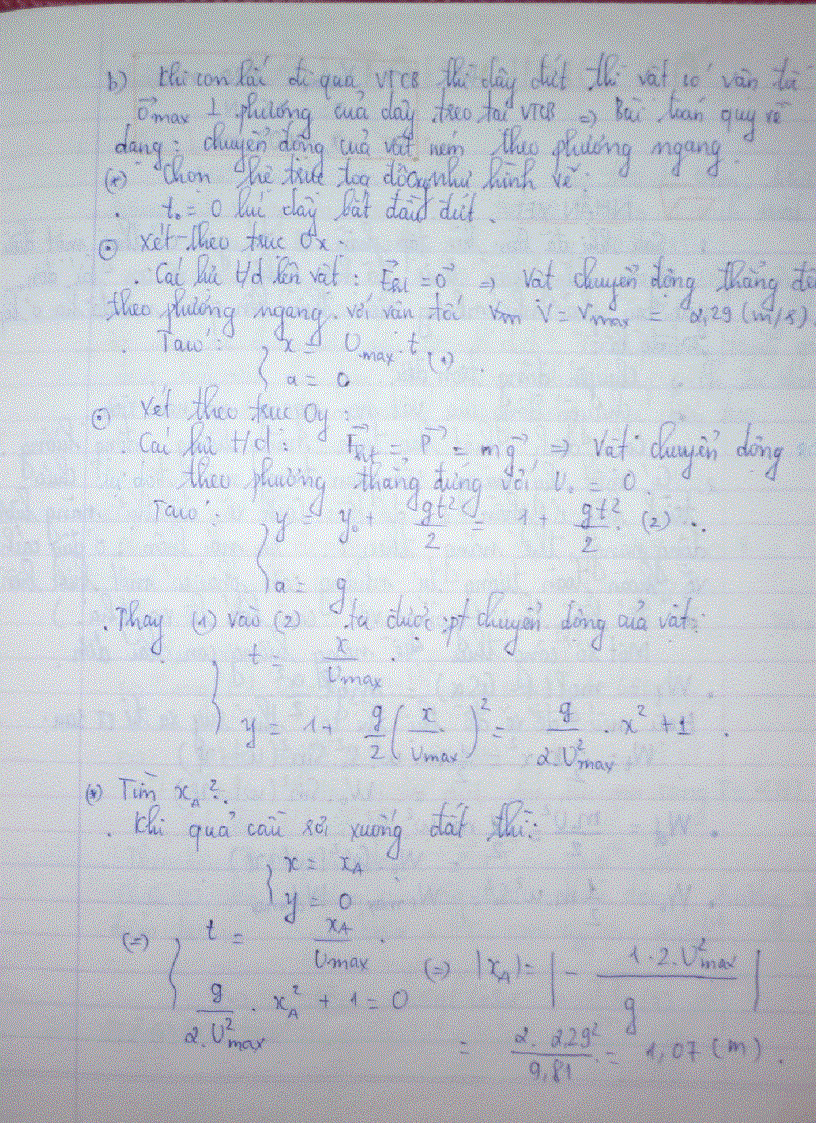 b) Khi con lắc đi qua VTCB thì dây đứt thì vật có vận tố
v⃗max ⊥ phương của dây treo tại VTCB => Bài toán quy về
dạng: chuyển động của vật ném theo phương ngang.
(*) Chọn hệ trục toạ độ Oxy như hình vẽ:
. t₀ = 0 lúc dây bắt đầu đứt.
⊙ Xét theo trục Ox:
. Các lực t/d lên vật: F⃗hl = 0⃗ => Vật chuyển động thẳng đề
theo phương ngang với vận tốc v = vmax = 2,29 (m/s).
. Ta có: { x = vmax.t (1)
a = 0
⊙ Xét theo trục Oy:
. Các lực t/d: F⃗hl = P⃗ = mg⃗ => Vật chuyển động
theo phương thẳng đứng với v₀ = 0.
Ta có: { y = y₀ + gt²/2 = 1 + gt²/2. (2)
a = g
. Thay (1) vào (2) ta được pt chuyển động của vật:
{ t = x/vmax.
y = 1 + g/2 (x/vmax)² = g/2vmax² . x² + 1.
(*) Tìm xA?
. Khi quả cầu rơi xuống đất thì:
{ x = xA
y = 0
(=) { t = xA/vmax. (=) |xA| = |- 1.2.vmax²/g|
g/2.vmax² . xA² + 1 = 0
= 2. 2,29²/9,81 = 1,07 (m).